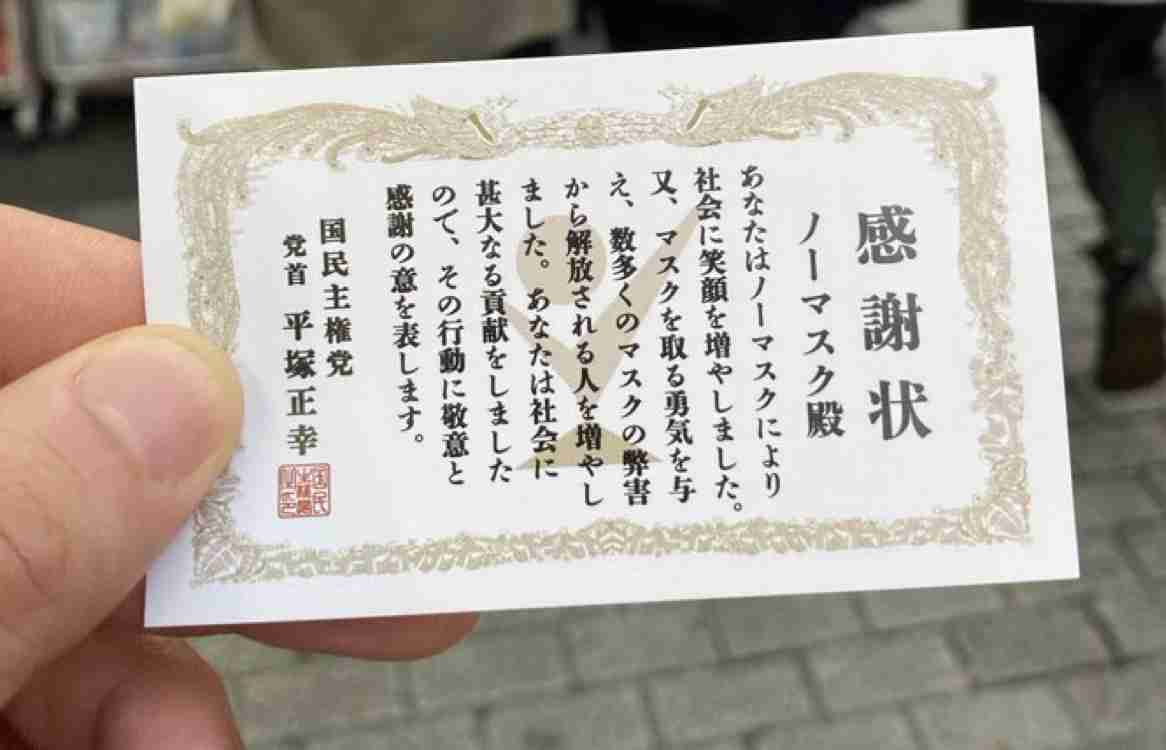 感謝状
ノーマスク殿
あなたはノーマスクにより
社会に笑顔を増やしました。
又、マスクを取る勇気を与
え、数多くのマスクの弊害
から解放される人を増やし
ました。あなたは社会に
甚大なる貢献をしました
のて、その行動に敬意と
感謝の意を表します。
国民主権党
党首 平塚正幸